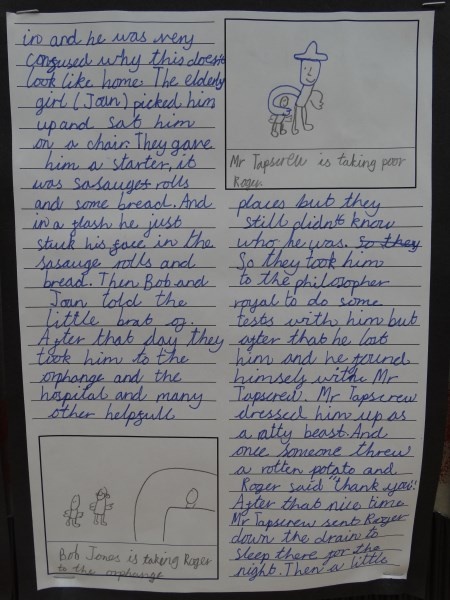 in and he was very
confused why this does't
look like home. The elderly
girl (Joan) picked him
up and sat him
on a chair. They gave
him a starter, it
was sasauges rolls
and some bread. And
in a flash he just
stuck his face in the
sasauge rolls and
bread. Then Bob and
Joan told the
little brat of.
After that day they
took him to the
orphange and the
hospital and many
other helpfull
Bob Jones is taking Roger
to the orphange
Mr Tapscrew is taking poor
Roger.
places but they
still didn't know
who he was. So they
So they took him
to the philosopher
royal to do some
tests with him but
after that he lost
him and he found
himself with Mr
Tapscrew. Mr Tapscrew
dressed him up as
a ratty beast. And
once someone threw
a rotten potato and
Roger said "thank you!
After that nice time
Mr Tapscrew sent Roger
down the drain to
sleep there for the
night. Then a little